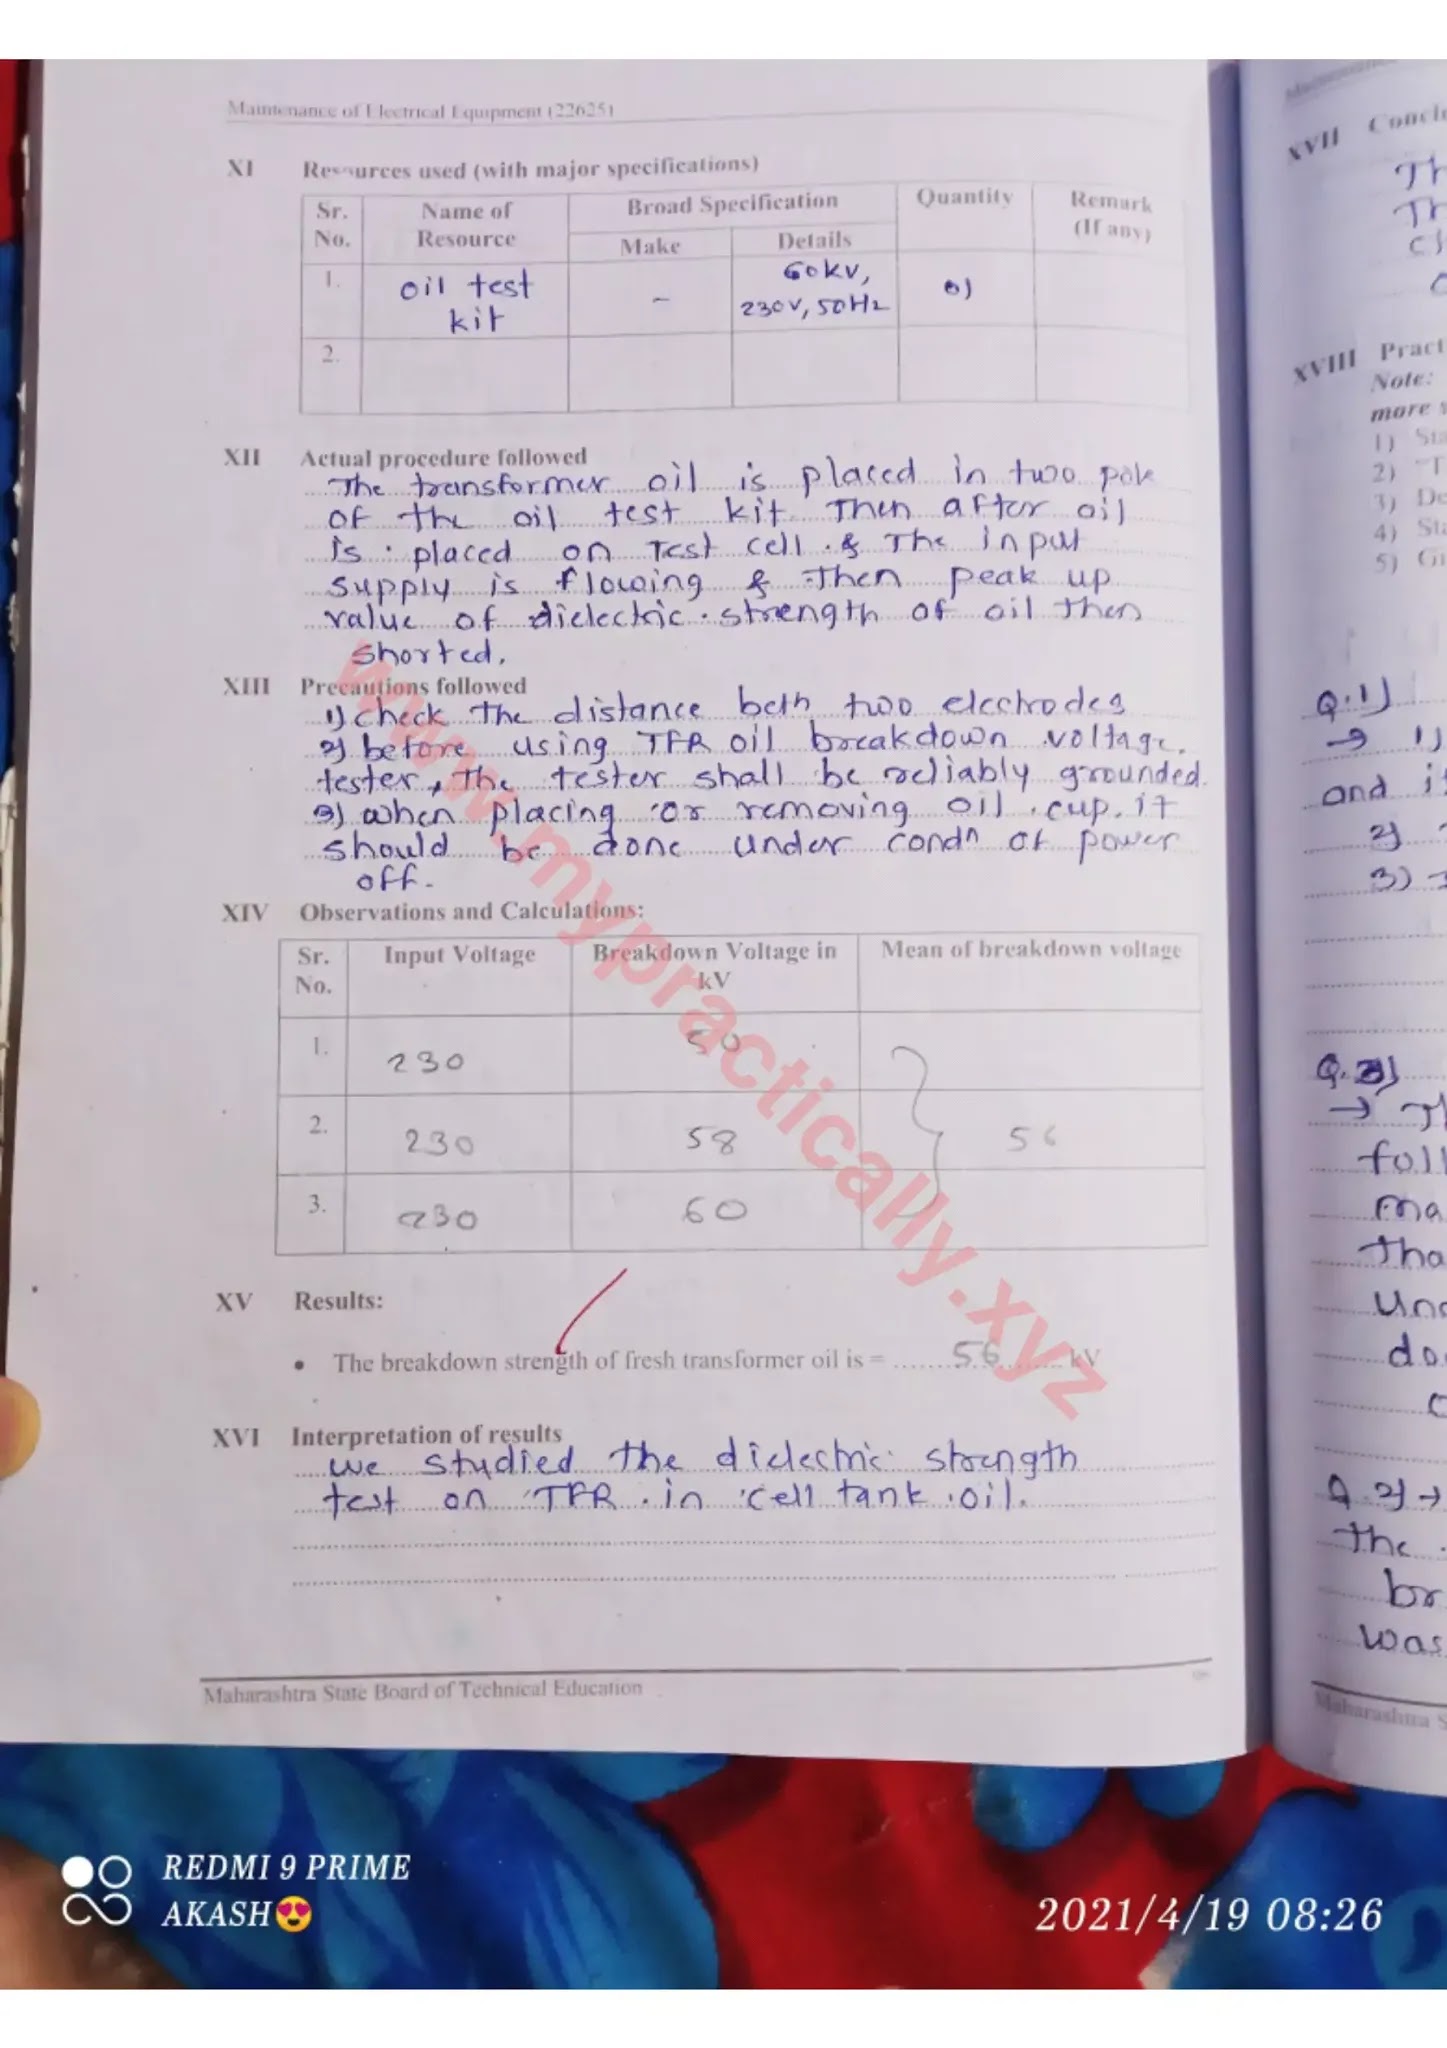 Maintenance of Electrical Equipment (22625)
XI Resources used (with major specifications)
Sr. No. Name of Resource Broad Specification Quantity Remark (If any)
Make Details
1. oil test kit - 60kV, 230V, 50Hz 01
2.
XII Actual procedure followed
The transformer oil is placed in two pole
of the oil test kit. Then after oil
is placed on Test cell & The input
supply is flowing & Then peak up
value of dielectric strength of oil then
shorted.
XIII Precautions followed
1) check the distance betn two electrodes
2) before using TFR oil breakdown voltage
tester, the tester shall be reliably grounded.
3) when placing or removing oil cup. it
should be done under condn of power
off.
XIV Observations and Calculations:
Sr. No. Input Voltage Breakdown Voltage in kV Mean of breakdown voltage
1. 230 50
2. 230 58 56
3. 230 60
XV Results:
• The breakdown strength of fresh transformer oil is = 56 kV
XVI Interpretation of results
We studied the dielectric strength
test on TFR in cell tank oil.
Maharashtra State Board of Technical Education
www.mypractically.xyz
XVII
Th
Th
XVIII Pract
Note:
more s
1) Sta
2) "T
3) De
4) Sta
5) Gi
Q.1)
→ 1)
and i
2)
3) →
Q.3)
→ Th
foll
ma
tha
und
do
Q.2) →
the
br
was
Maharashtra S
REDMI 9 PRIME
AKASH😍
2021/4/19 08:26